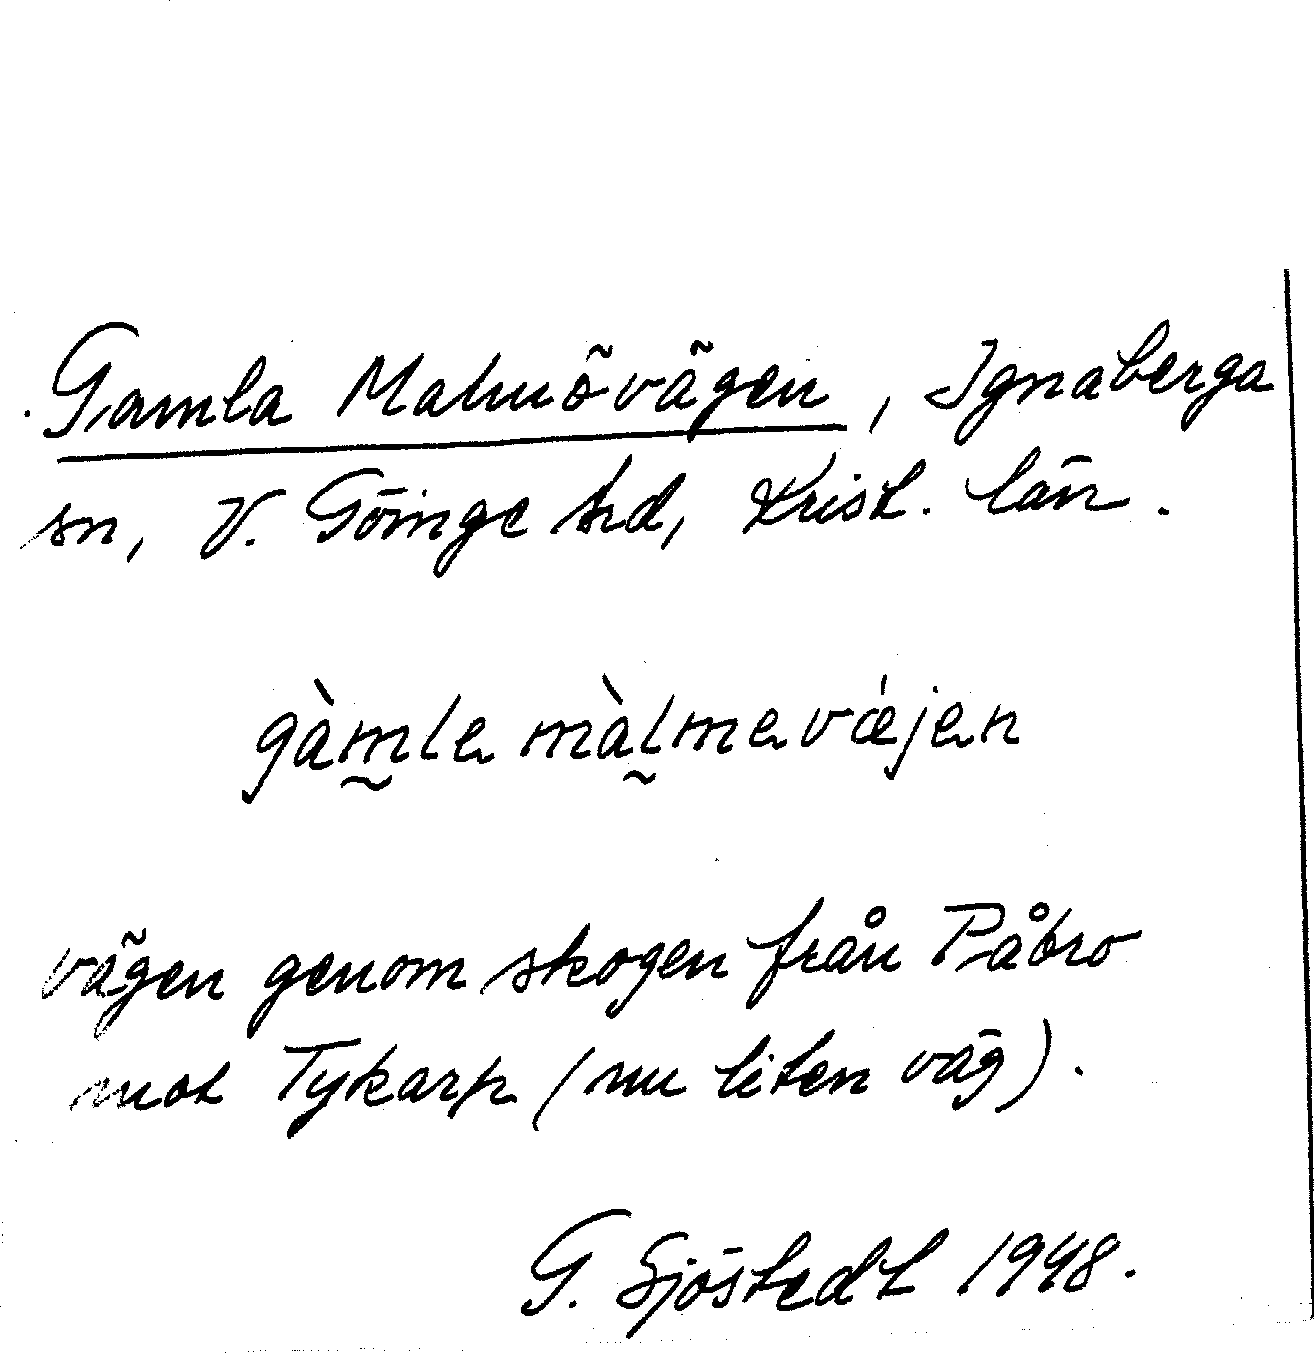 Gamla Malmövägen, Ignaberga
sn, V. Göinge hd, Krist. län.
gàm̰le màl̰mevǽjen
vägen genom skogen från Påbro
mot Tykarp (nu liten väg).
G. Sjöstedt 1948.